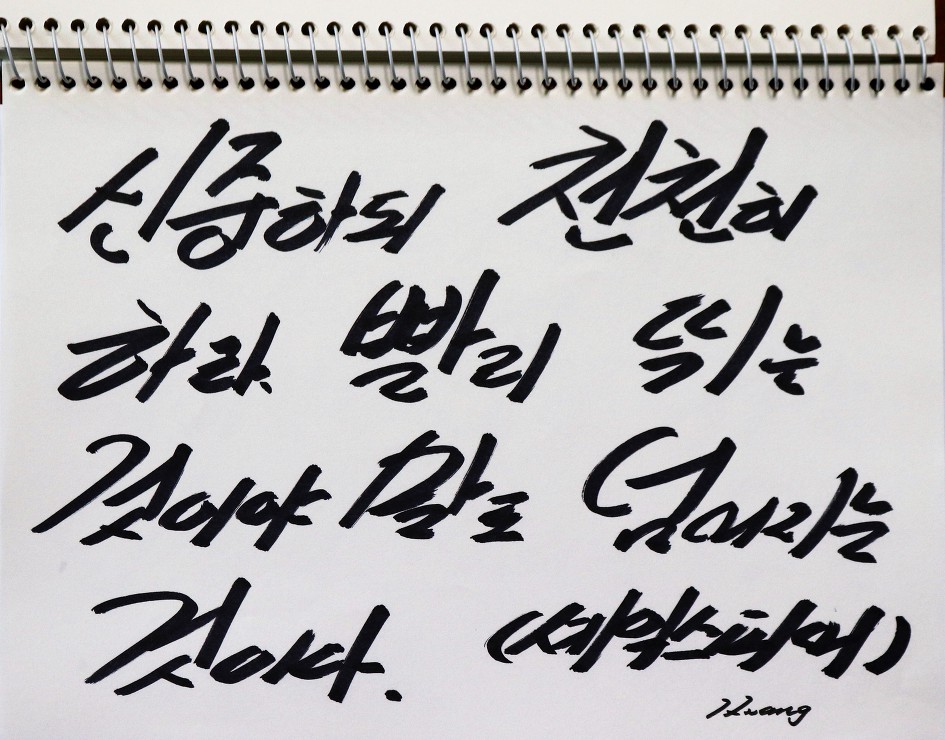 신중하되 천천히
하라. 빨리 뛰는
것이야 말로 넘어지는
것이다. (셰익스피어)
Hwang